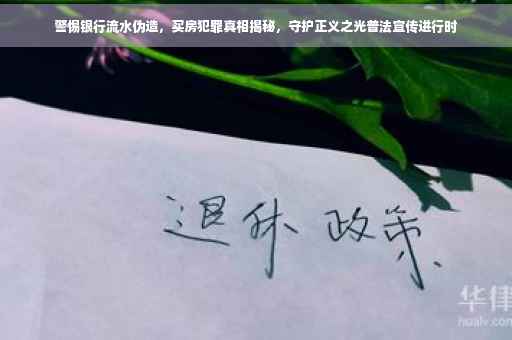 警惕银行流水伪造，买房犯罪真相揭秘，守护正义之光普法宣传进行时
退休 政策
华律
hualv.com